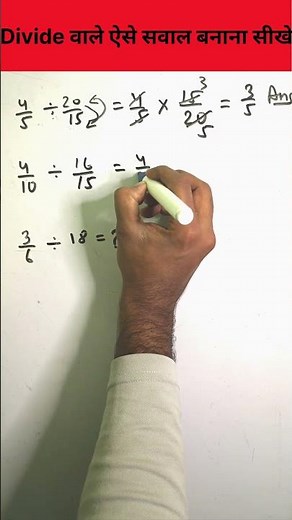 Divide वाले ऐसे सवाल बनाना सीखे
4/5 ÷ 20/15 = 4/5 × 15 3/20 5 = 3/5 Ans
4/10 ÷ 16/15 = 4
3/6 ÷ 18 = ?